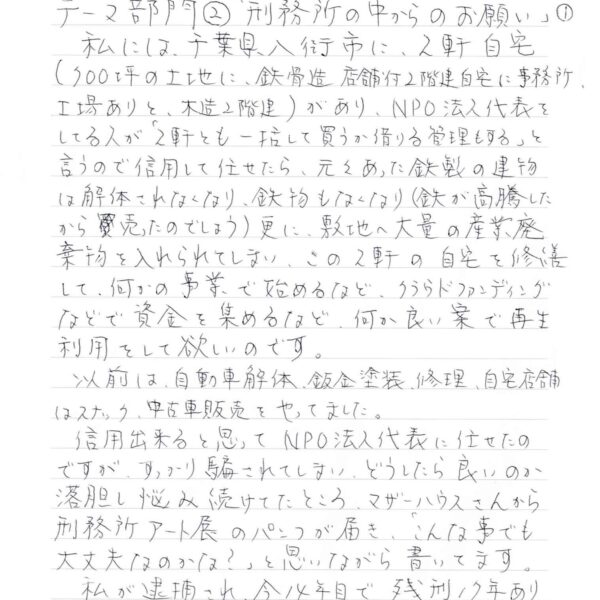 テーマ部門②「刑務所の中からのお願い」①
私には、千葉県八街市に、2軒自宅
(300坪の土地に、鉄骨造店舗付2階建自宅に事務所、
工場ありと、木造2階建)があり、NPO法人代表を
してる人が「2軒とも一括して買うか借りる管理もする」と
言うので信用して任せたら、元々あった鉄製の建物
は解体されなくなり、鉄物もなくなり(鉄が高騰した
から売ったのでしょう)更に、敷地へ大量の産業廃
棄物を入れられてしまい、この2軒の自宅を修繕
して、何かの事業で始めるなど、クララドファンディング
などで資金を集めるなど、何か良い案で再生
利用をして欲しいのです。
以前は、自動車解体、鈑金塗装、修理、自宅店舗
はスナック、中古車販売をやってました。
信用出来ると思ってNPO法人代表に任せたの
ですが、すっかり騙されてしまい、どうしたら良いのか
落胆し悩み続けてたところ、マザーハウスさんから
刑務所アート展のパンフが届き、「こんな事でも
大丈夫なのかな?」と思いながら書いてます。
私が逮捕され、今14年目で残刑12年あり